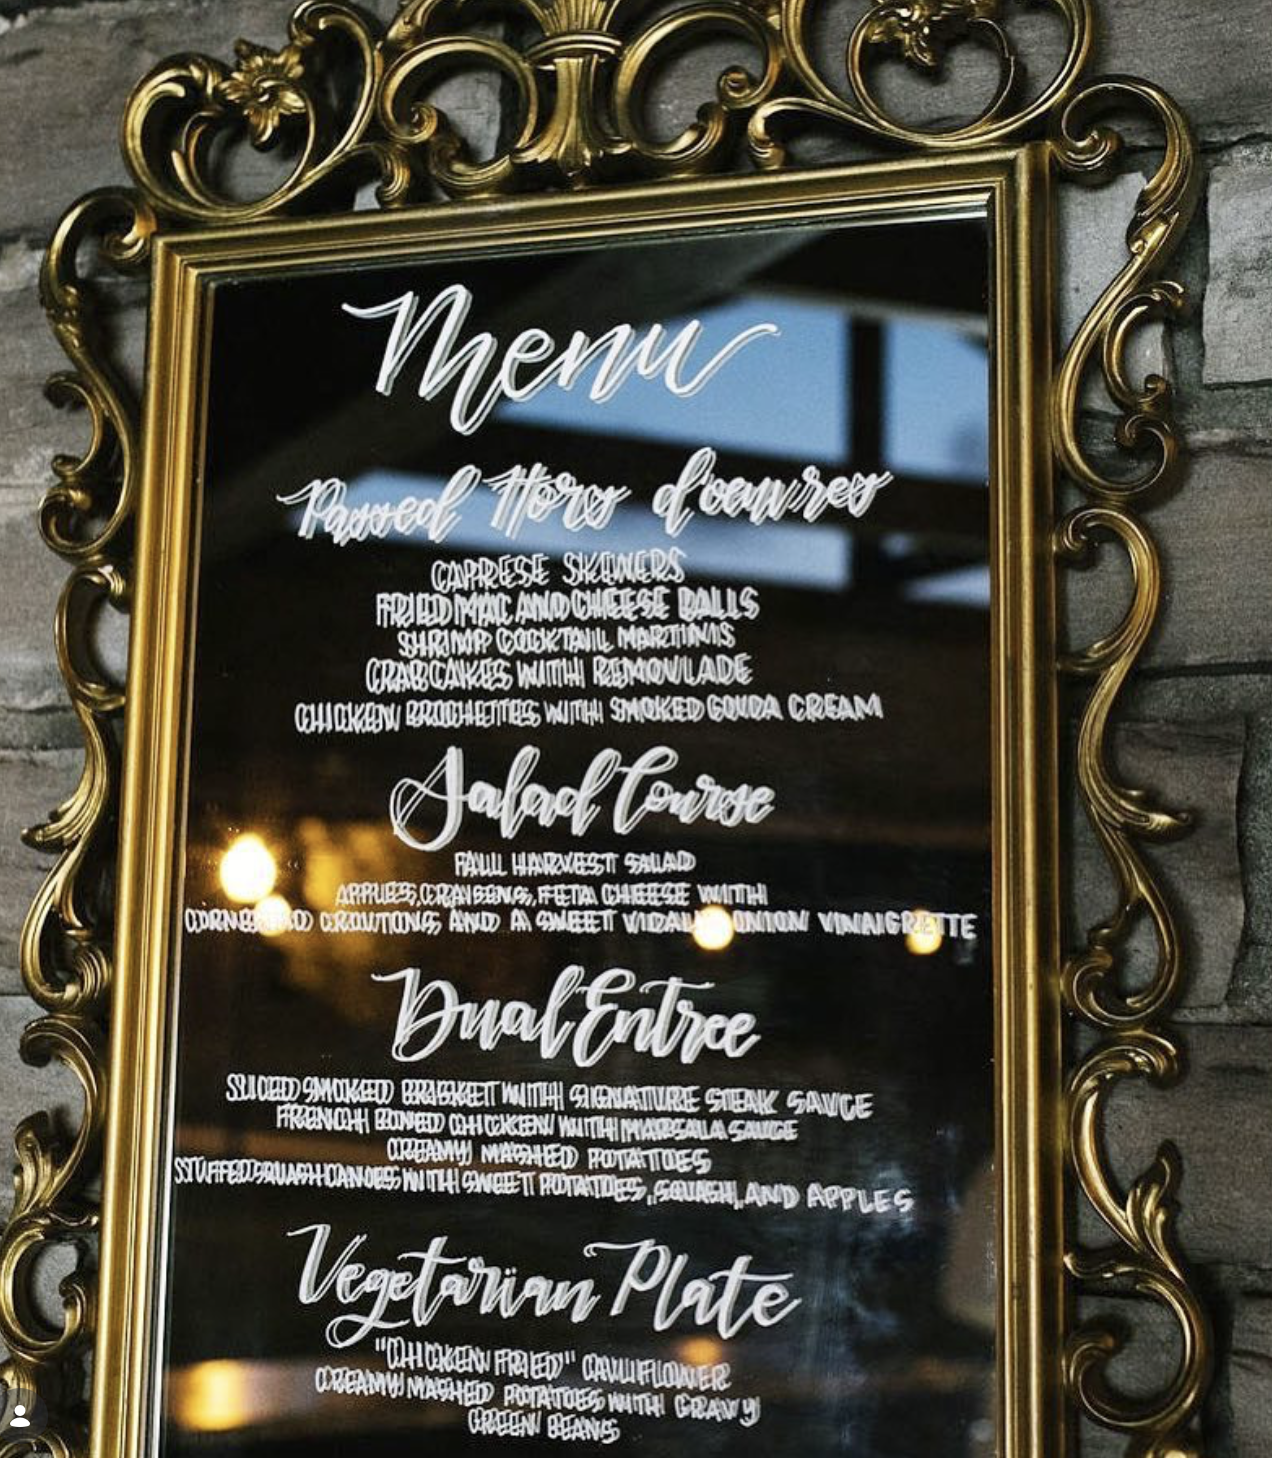 Menu
Passed Hors d'oeuvres
CAPRESE SKEWERS
FRIED MAC AND CHEESE BALLS
SHRIMP COCKTAIL MARTINIS
CRABCAKES WITH REMOULADE
CHICKEN BROCHETTES WITH SMOKED GOUDA CREAM
Salad Course
FALL HARVEST SALAD
APPLES, CRAISENS, FETA CHEESE WITH
CORNBREAD CROUTONS AND A SWEET VIDALIA ONION VINAIGRETTE
Dual Entree
SLICED SMOKED BRISKET WITH SIGNATURE STEAK SAUCE
FRENCH BONED CHICKEN WITH MARSALA SAUCE
CREAMY MASHED POTATOES
STUFFED SQUASH CANOES WITH SWEET POTATOES, SQUASH, AND APPLES
Vegetarian Plate
"CHICKEN FRIED" CAULIFLOWER
CREAMY MASHED POTATOES WITH GRAVY
GREEN BEANS